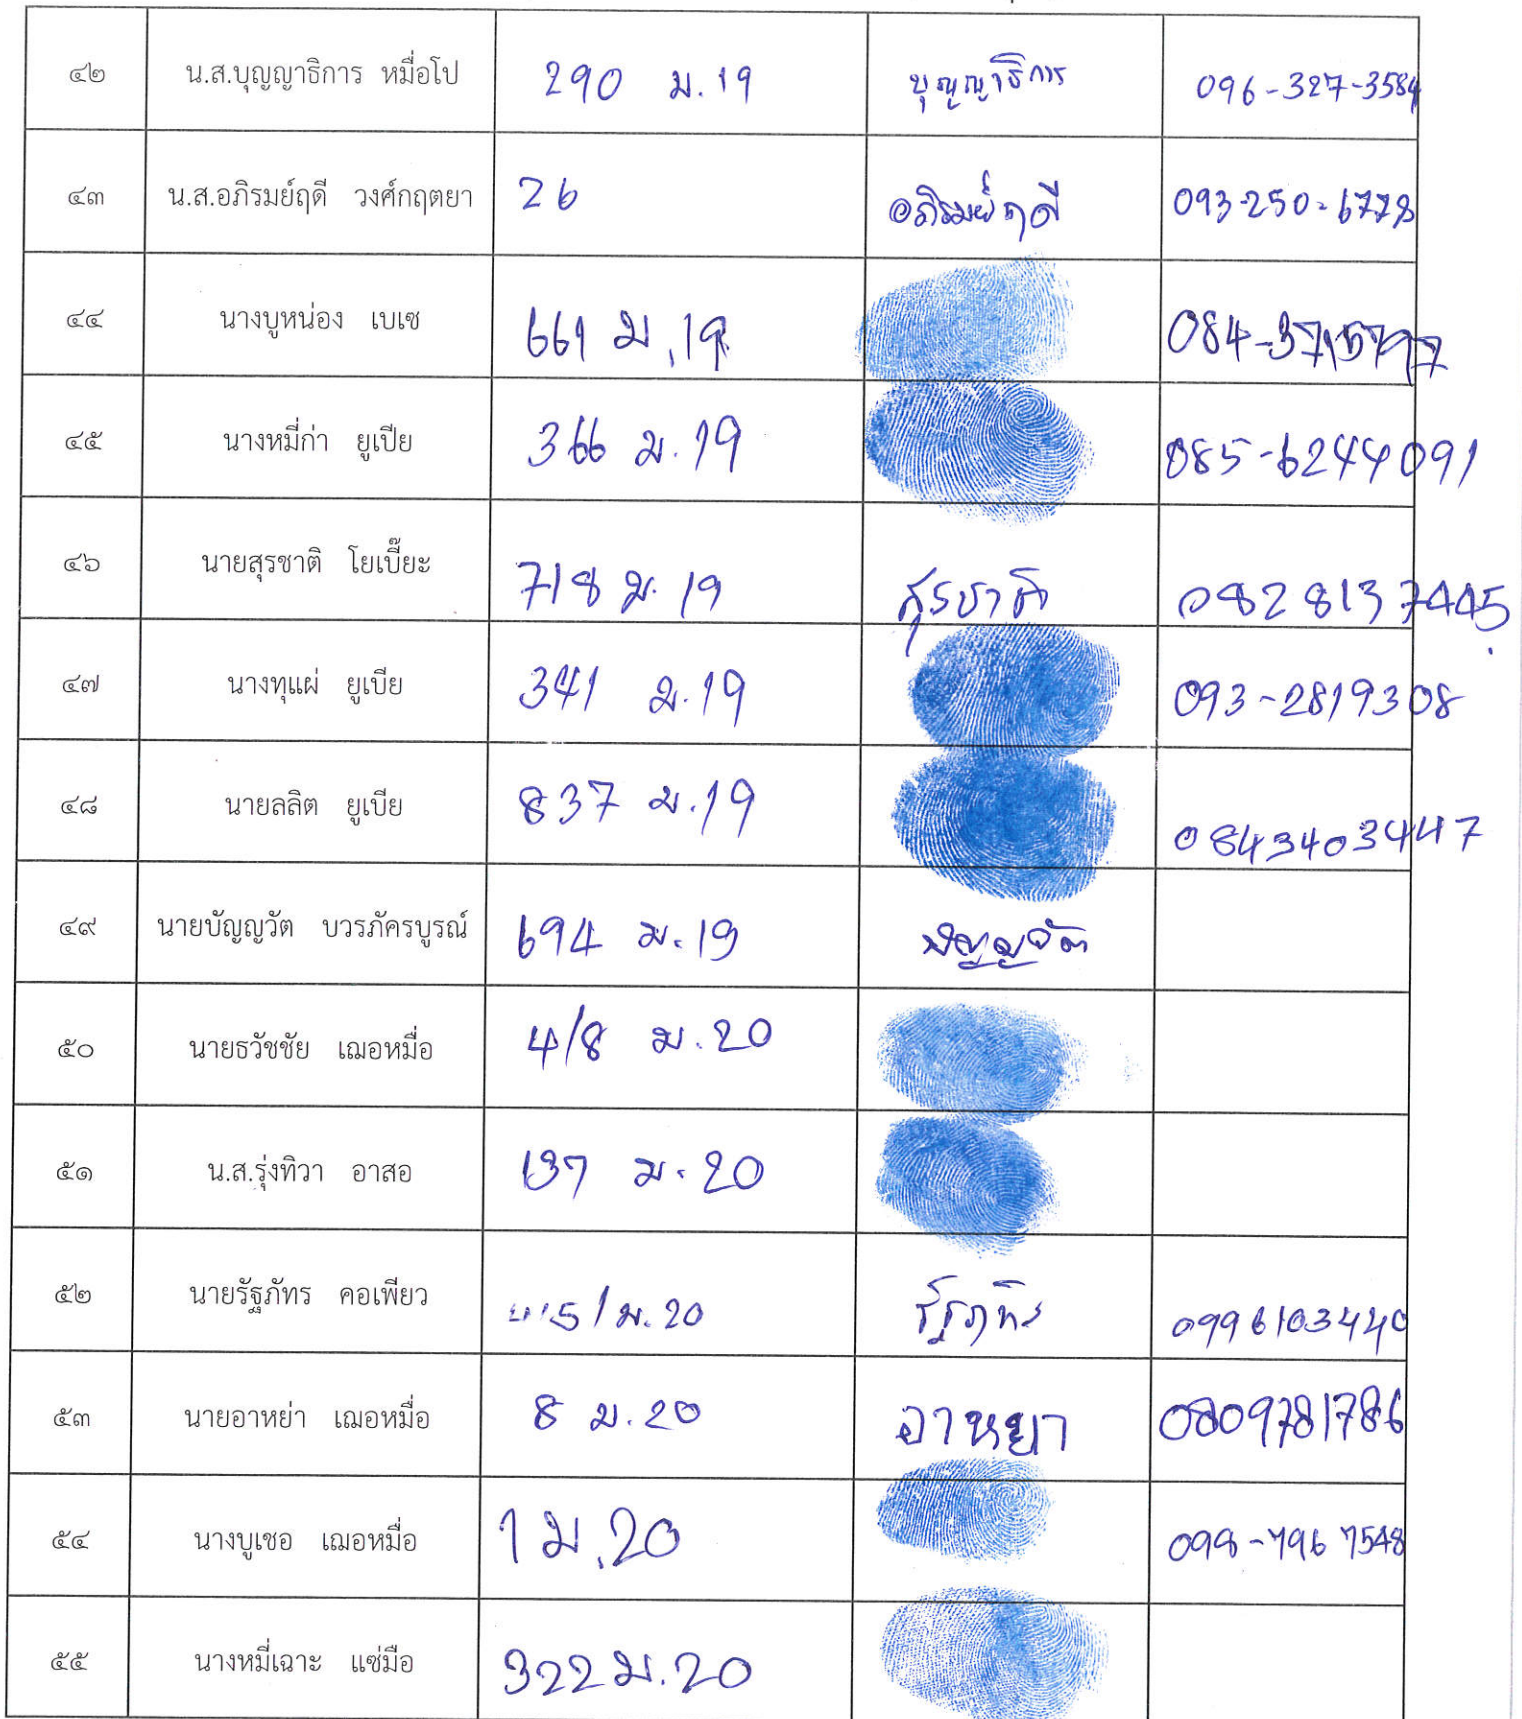 ๔๒ น.ส.บุญญาธิการ หมื่อโป 290 ม.19 บุญญาธิการ 096-327-3584
๔๓ น.ส.อภิรมย์ฤดี วงศ์กฤตยา 26 อภิรมย์ฤดี 093-250-6778
๔๔ นางบูหน่อง เบเซ 661 ม.19
๔๕ นางหมี่ก่า ยูเปีย 366 ม.19 085-6244091
๔๖ นายสุรชาติ โยเบี๊ยะ 718 ม.19 สุรชาติ 0828137445
๔๗ นางทุแผ่ ยูเบีย 341 ม.19 093-2819308
๔๘ นายลลิต ยูเบีย 837 ม.19 0843403447
๔๙ นายบัญญวัต บวรภัครบูรณ์ 694 ม.19 บัญญวัต
๕๐ นายธวัชชัย เฌอหมื่อ 4/8 ม.20
๕๑ น.ส.รุ่งทิวา อาสอ 137 ม.20
๕๒ นายรัฐภัทร คอเพียว ม.20 รัฐภัทร 0996103440
๕๓ นายอาหย่า เฌอหมื่อ 8 ม.20 อาหยา 0809781786
๕๔ นางบูเชอ เฌอหมื่อ 1 ม.20 098-796 7548
๕๕ นางหมี่เฉาะ แซ่มือ 322 ม.20